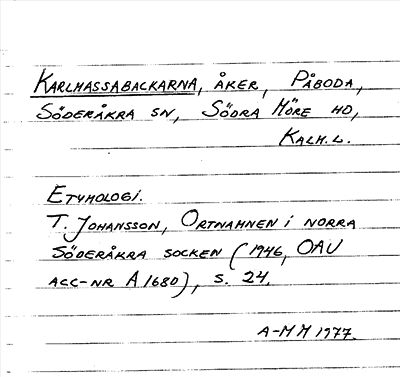 KARLMASSABACKARNA, ÅKER, PÅBODA,
SÖDERÅKRA SN, SÖDRA MÖRE HD,
KALM. L.
ETYMOLOGI.
T. JOHANSSON, ORTNAMNEN I NORRA
SÖDERÅKRA SOCKEN (1946, OAU
ACC-NR A 1680), S. 24.
A-M M 1977.